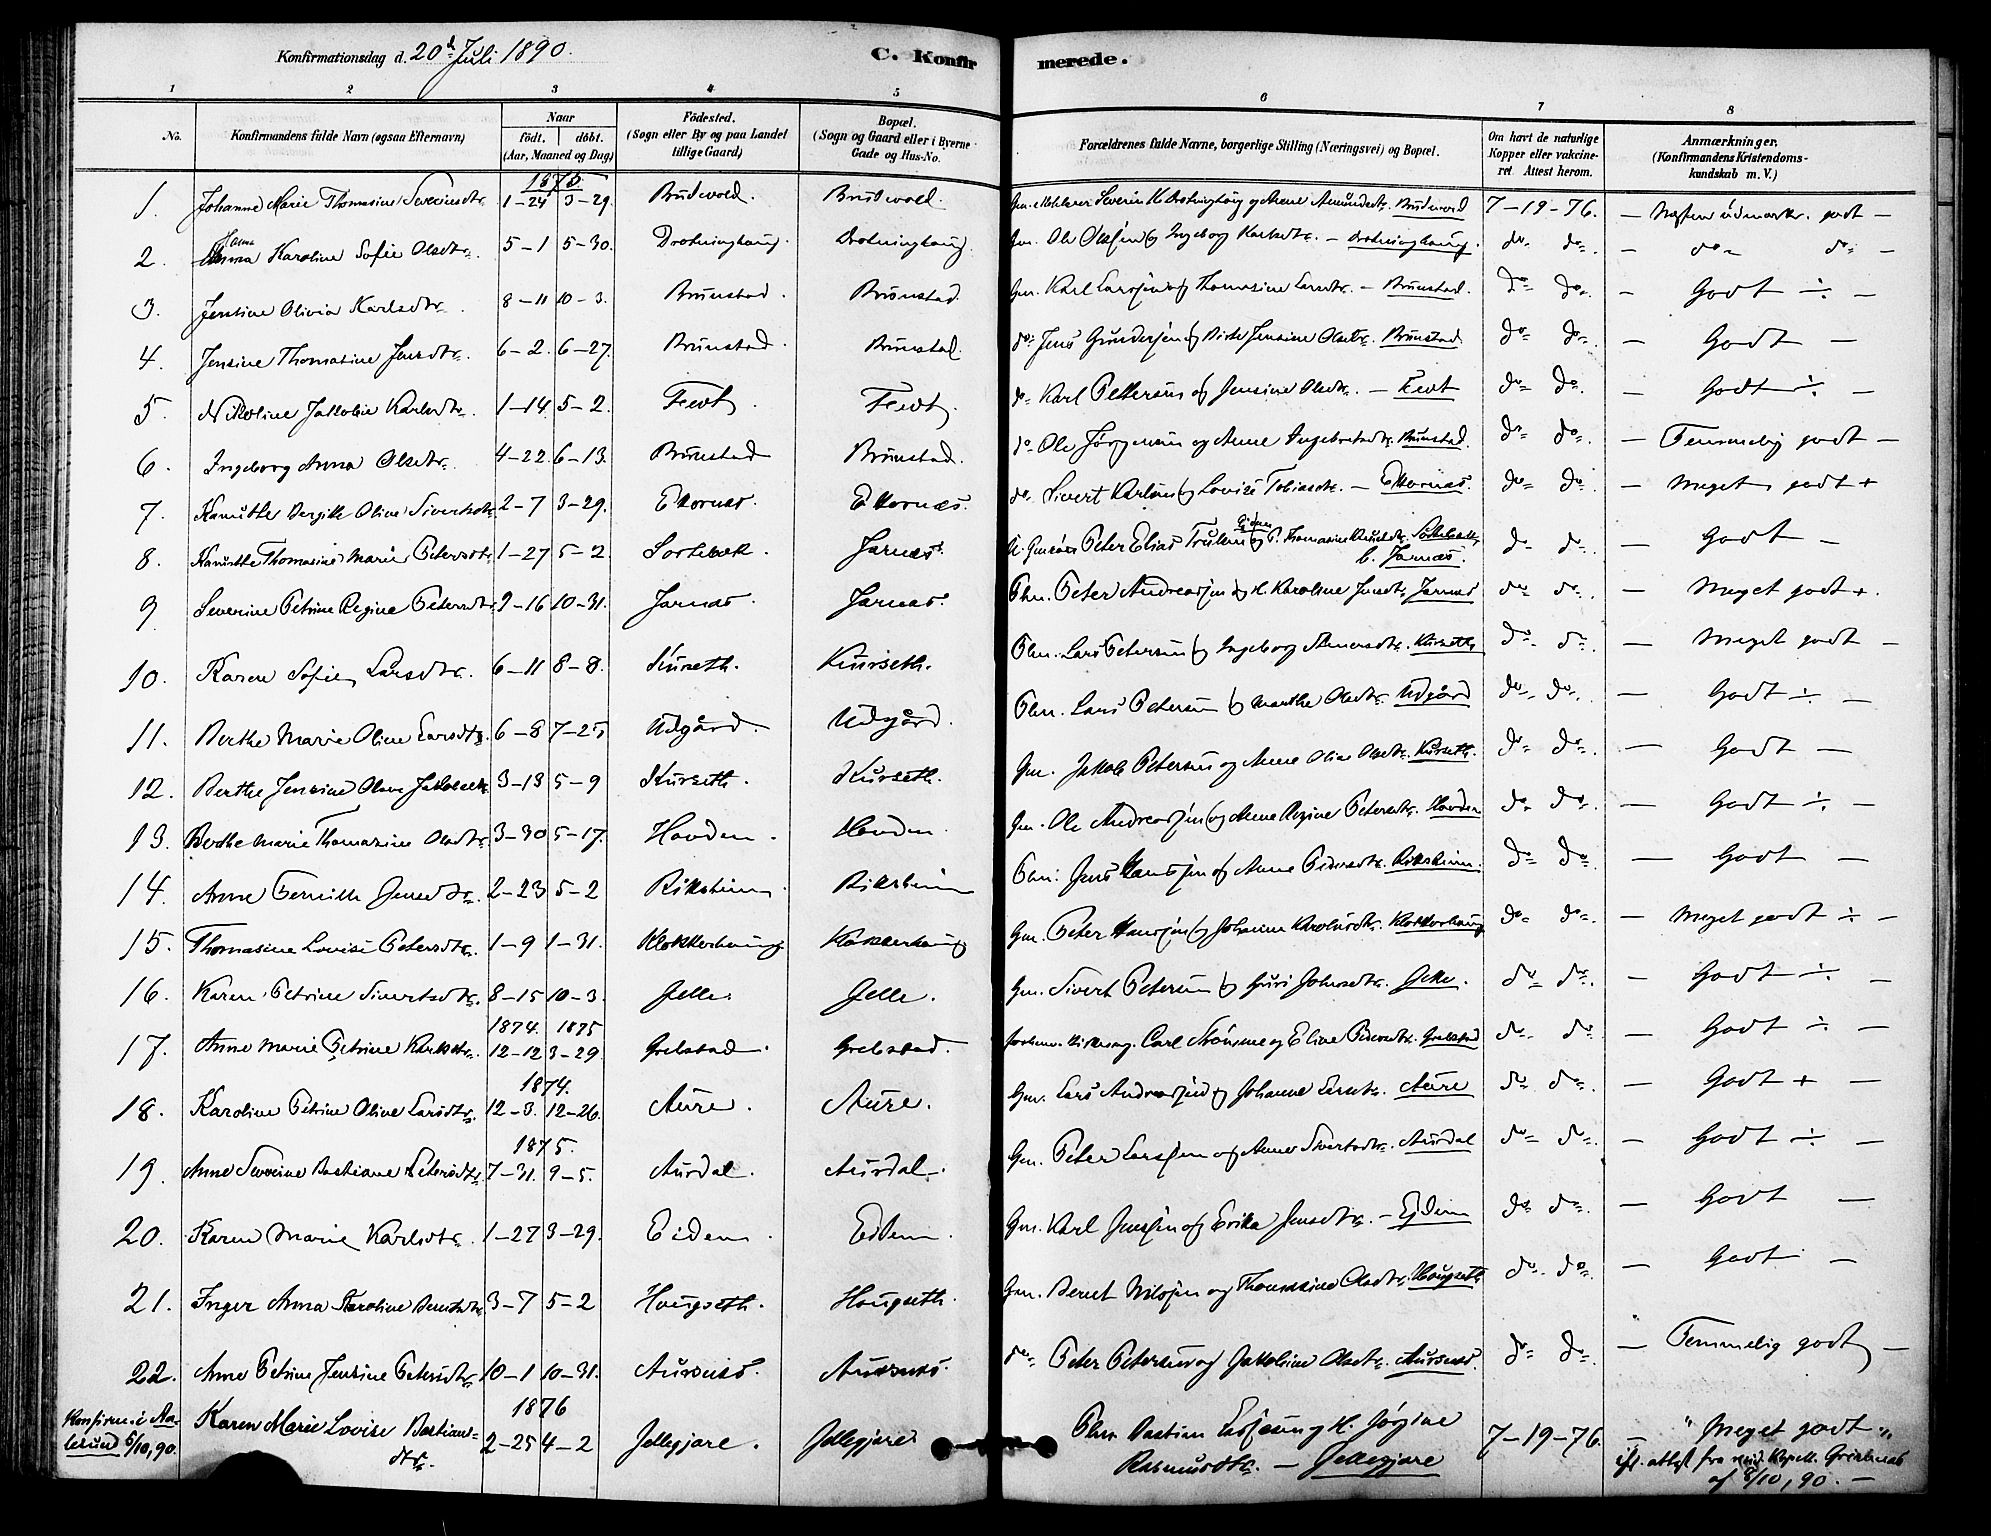 Konfirmationsdag d. 20de Juli 1890.
C. Konfirmerede.
1 2 3 4 5 6 7 8
No. Konfirmandens fulde Navn (ogsaa Efternavn) Naar födt. döbt. (Aar, Maaned og Dag) Födested. (Sogn eller By og paa Landet tillige Gaard) Bopæl. (Sogn og Gaard eller i Byerne Gade og Hus-No. Forældrenes fulde Navne, borgerlige Stilling (Næringsvei) og Bopæl. Om havt de naturlige Kopper eller vakcineret. Attest herom. Anmærkninger, (Konfirmandens Kristendomskundskab m. V.)
1875
1. Johanne Marie Thomasine Severinsdtr. 1–24 3–29. Brudevold. Brudevold. Severin K. Drotninghaug og Anne Amundsdtr. Brudevold 7–19–76. — Næsten udmærk. godt —
2. Karoline Sofie Olsdtr. 5–1 5–30. Drotninghaug. Drotninghaug. Gm. Ole Olsen og Ingeborg Karlsdtr. – Drotninghaug. do do. — do do —
3. Jensine Olivia Karlsdtr. 8–11 10–3. Brunstad. Brunstad. Gm. Karl Larsen og Thomasine Larsdtr. – Brunstad. do do. — Godt ÷ —
4. Jensine Thomasine Jensdtr. 6–2. 6–27. Brunstad. Brunstad. do Jens Gundersen og Birte Jensine Olsdtr. Brunstad do do. — Godt —
5. Nikoline Jakobie Karlsdtr. 1–14 5–2. Fedt. Fedt. do Karl Pettersen og Jensine Olsdtr. – Fedt do do. — Godt ÷ —
6. Ingeborg Anna Olsdtr. 4–22. 6–13. Brunstad Brunstad. do Ole Jørgensen og Anne Ingebrigtsdtr. Brunstad. do do. — Temmelig godt —
7. Kanutte Bergitte Oline Sivertsdtr. 2–7 3–29. Ekornæs. Ekornæs. do Sivert Karlsen og Lovise Tobiasdtr. – Ekornæs. do do. — Meget godt +
8. Kanutte Thomasine Marie Petersdtr. 1–27 5–2 Jarnæs. Peter Elias Thomasine Jarnæs. do do. — Godt —
9 Severine Petrine Regine Petersdtr. 9–16 10–31. Jarnæs. Jarnæs. Peter Andreassen og H. Karoline Jensdtr. Jarnæs do do. — Meget godt +.
10. Karen Sofie Larsdtr. 6–11 8–8. Kurseth. Kurseth. Lars Petersen og Ingeborg Kurseth do do. — Meget godt —
11. Berthe Marie Oline Larsdtr. 6–8 7–25 Udgård. Udgård. Lars Petersen og Marthe Olsdtr. Udgård do do. — Godt ÷ —
12. Berthe Jensine Olava Jakobsdtr. 3–13 5–9 Kurseth. Kurseth. Gm. Jakob Petersen og Anne Oline Olsdtr. Kurseth. do do. — Godt —
13. Berthe Marie Thomasine Olsdtr. 3–30 5–17. Hovden. Hovden. Gm. Ole Andreassen og Anne Regine Petersdtr. Hovden do do. — Godt ÷ —
14. Anne Pernille Jensdtr. 2–23 5–2 Riksheim. Riksheim Jens Hansen og Anne Pedersdtr. Riksheim. do do. — Godt —
15. Thomasine Lovise Petersdtr. 1–9 1–31. Klokkerhaug. Klokkerhaug Gm. Peter Hansen og Johanne Karolusdtr. Klokkerhaug do do. — Meget godt ÷ —
16. Karen Petrine Sivertsdtr. 8–15 10–3. Jelle. Jelle. Gm. Sivert Petersen og Guri Johnsdtr. Jelle. do do. — Godt ÷
1874. 1875
17. Anne Marie Petrine Karlsdtr. 12–12 3–29. Grebstad. Grebstad. Carl Strømme og Eline Pedersdtr. Grebstad do do — Godt ÷ —
1874.
18. Karoline Petrine Oline Larsdtr. 12–3. 12–26. Aure. Aure. Gm. Lars Andreassen og Johanne Larsdtr. Aure do do. — Godt + —
1875.
19. Anne Severine Bastiane Petersdtr. 7–31. 9–5. Aurdal. Aurdal. Gm. Peter Larssen og Anne Sivertsdtr. Aurdal do do. — Godt ÷ —
20. Karen Marie Karlsdtr. 1–27 3–29. Eidem. Eidem. Gm. Karl Jenssen og Erika Jensdtr. – Ejdem do do. — Godt —
21. Inger Anna Karoline Berntsdtr. 3–7 5–2 Haugseth. Haugseth. Gm. Bernt Nilsen og Thomasine Olsdtr. Haugseth do do. — Godt —
22. Anne Petrine Jensine Petersdtr. 10–1 10–31. Aursnes. Aursnes. do Peter Petersen og Jakobine Olsdtr. Aursnes. do do. — Temmelig godt —
1876
Konfirm. i Aalesund 5/10, 90. Karen Marie Lovise Bastiansdtr. 2–25 4–2 Jellegjære. Jellegjære Bastian og H. Jørgine Rasmusdtr. – Jellegjære 7–19–76. — " Meget godt "
attest fra Kapell.
af 8/10, 90. —